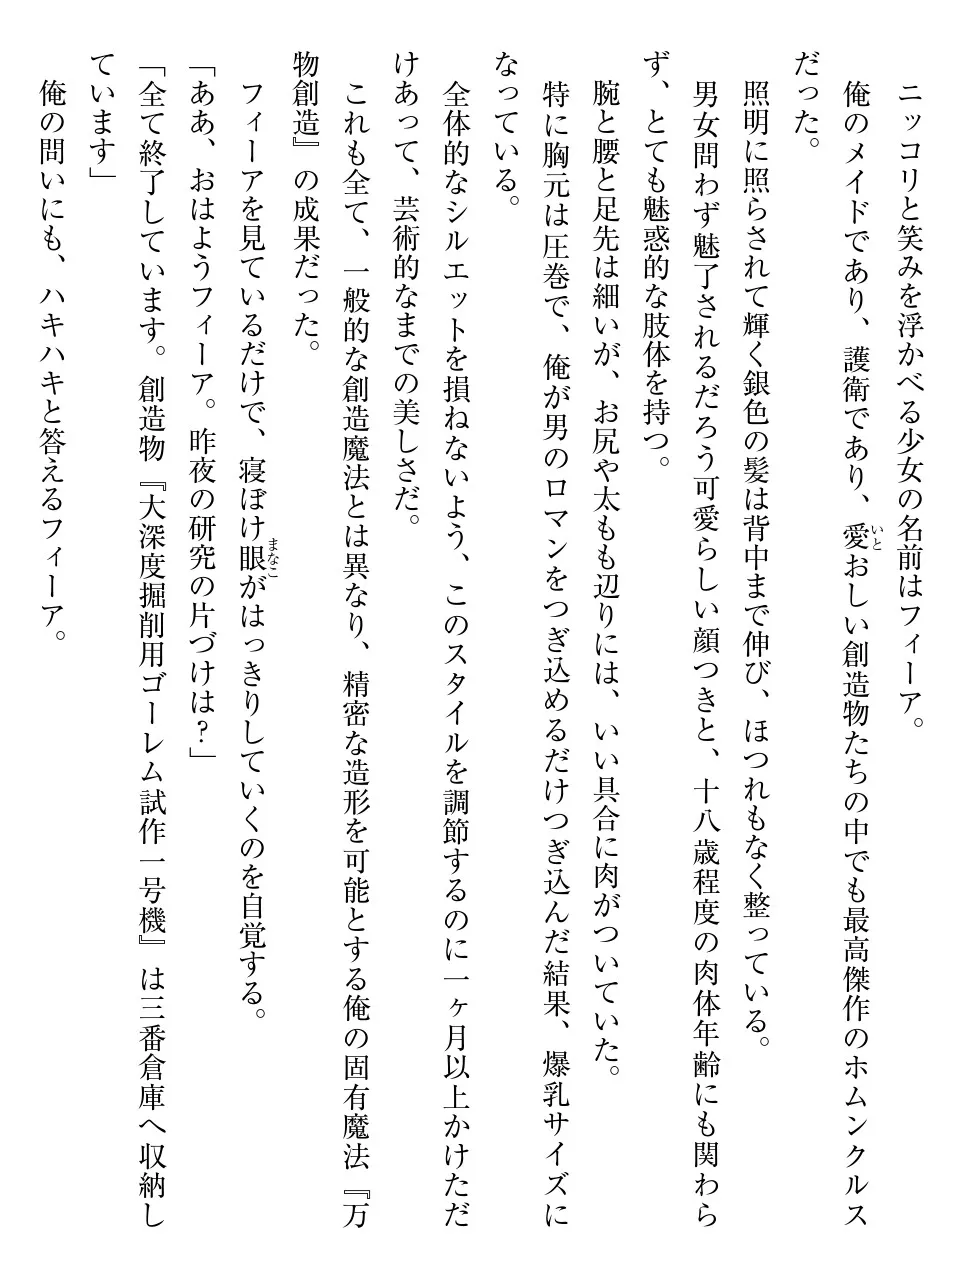 ニッコリと笑みを浮かべる少女の名前はフィーア。
俺のメイドであり、護衛であり、愛おしい創造物たちの中でも最高傑作のホムンクルス
だった。
照明に照らされて輝く銀色の髪は背中まで伸び、ほつれもなく整っている。
男女問わず魅了されるだろう可愛らしい顔つきと、十八歳程度の肉体年齢にも関わら
ず、とても魅惑的な肢体を持つ。
腕と腰と足先は細いが、お尻や太もも辺りには、いい具合に肉がついていた。
特に胸元は圧巻で、俺が男のロマンをつぎ込めるだけつぎ込んだ結果、爆乳サイズに
なっている。
全体的なシルエットを損ねないよう、このスタイルを調節するのに一ヶ月以上かけただ
けあって、芸術的なまでの美しさだ。
これも全て、一般的な創造魔法とは異なり、精密な造形を可能とする俺の固有魔法『万
物創造』の成果だった。
フィーアを見ているだけで、寝ぼけ眼がはっきりしていくのを自覚する。
「ああ、おはようフィーア。昨夜の研究の片づけは？」
「全て終了しています。創造物『大深度掘削用ゴーレム試作一号機』は三番倉庫へ収納し
ています」
俺の問いにも、ハキハキと答えるフィーア。
いと
まなこ